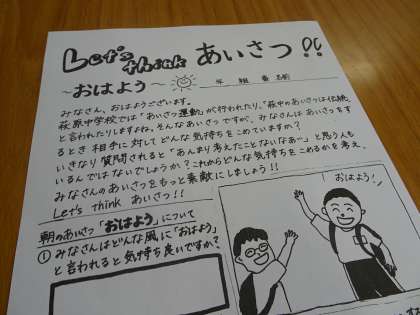 Let's think あいさつ!!
~おはよう~
年 組 番 名前
みなさん、おはようございます。
萩原中学校では「あいさつ運動」が行われたり、「萩中のあいさつは伝統」
と言われたりしますよね。そんなあいさつですが、みなさんはあいさつをす
るとき相手に対してどんな気持ちをこめていますか?
いきなり質問されると「あんまり考えたことないなあ~」と思う人も
いるんではないでしょうか?これからどんな気持ちをこめるかを考え、
みなさんのあいさつをもっと素敵にしましょう!!
Let's think あいさつ!!
朝のあいさつ「おはよう」について
① みなさんはどんな風に「おはよう」
と言われると気持ち良いですか?
おはよう!